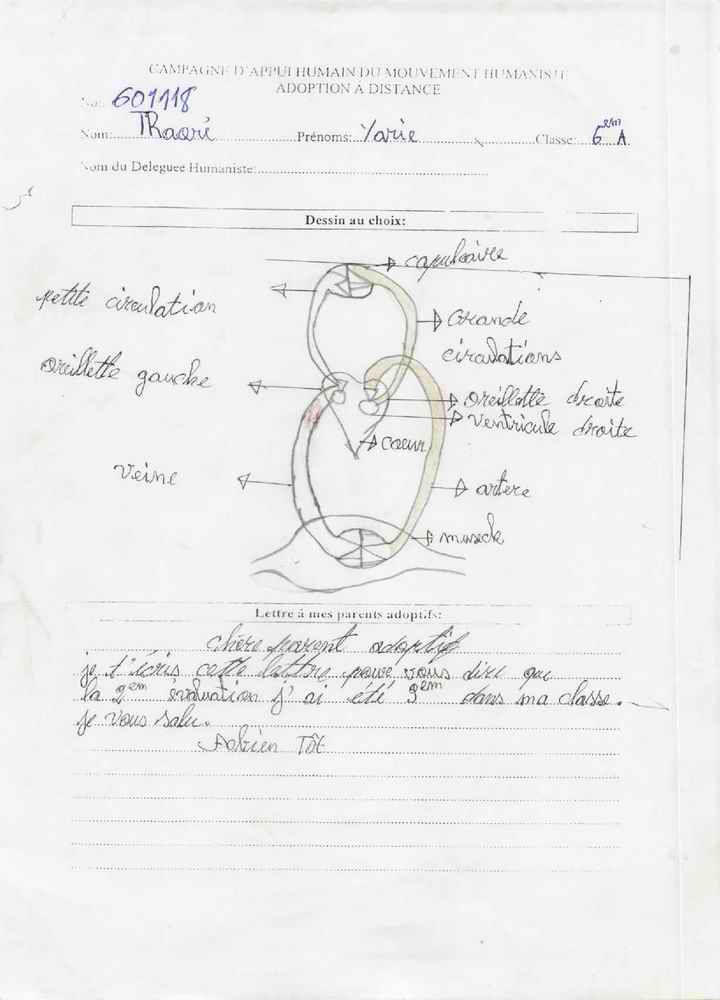 CAMPAGNE D'APPUI HUMAIN DU MOUVEMENT HUMANISTE
ADOPTION A DISTANCE
No: 601118
Nom: Traoré Prénoms: Yarie Classe: 6em A
Nom du Deleguee Humaniste:
Dessin au choix:
capuleaire
petite circulation
Grande
circulations
oreillette gauche
oreillette droite
ventricule droite
coeur
veine
artere
muscle
Lettre à mes parents adoptifs:
chère parent adoptif
je t'écris cette lettre pour vous dire que
la 2em évaluation j'ai été 3em dans ma classe.
je vous salu.
Adrien Tôt